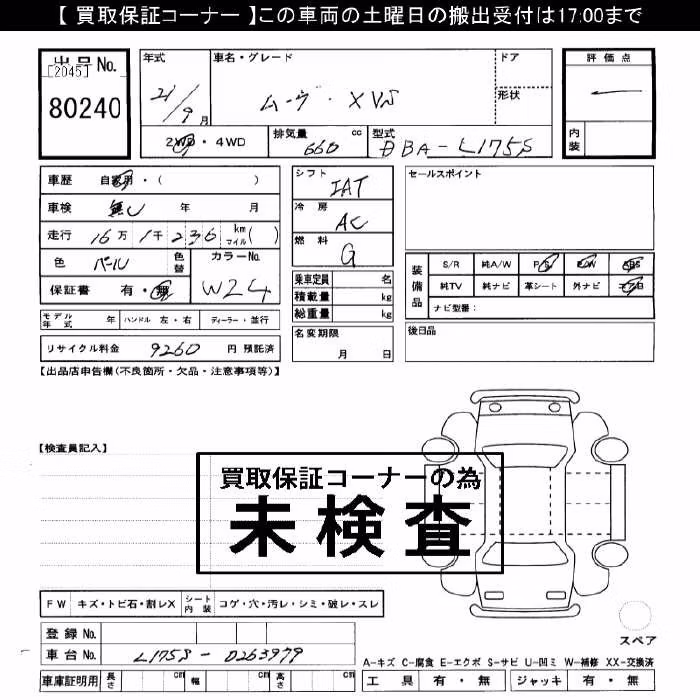 【 買取保証コーナー 】この車両の土曜日の搬出受付は17:00まで
出品No.
[2045]
80240
年式 車名・グレード ドア
21/9月 ムーヴ・XVS 形状
2WD・4WD 排気量 660 cc 型式 DBA-L175S
評価点
内装
車歴 自家用・( )
車検 無し 年 月
走行 16万1千236 km マイル( )
色 パール 色替 カラーNo. W24
保証書 有・無
モデル年式 年 ハンドル 左・右 ディーラー・並行
リサイクル料金 9260 円 預託済
シフト IAT
冷房 AC
燃料 G
乗車定員 名
積載量 kg
総重量 kg
名変期限
月 日
セールスポイント
装備品 S/R 純A/W P/S P/W ABS
純TV 純ナビ 革シート 外ナビ エアB
ナビ型番:
後日品
【出品店申告欄(不良箇所・欠品・注意事項等)】
【検査員記入】
買取保証コーナーの為
未検査
FW キズ・トビ石・割レX シート内装 コゲ・穴・汚レ・シミ・破レ・スレ
登録No.
車台No. L175S-0263979
車庫証明用 長さ cm 幅 cm 高さ cm
スペア
A-キズ C-腐食 E-エクボ S-サビ U-凹ミ W-補修 XX-交換済
工具 有・無 ジャッキ 有・無